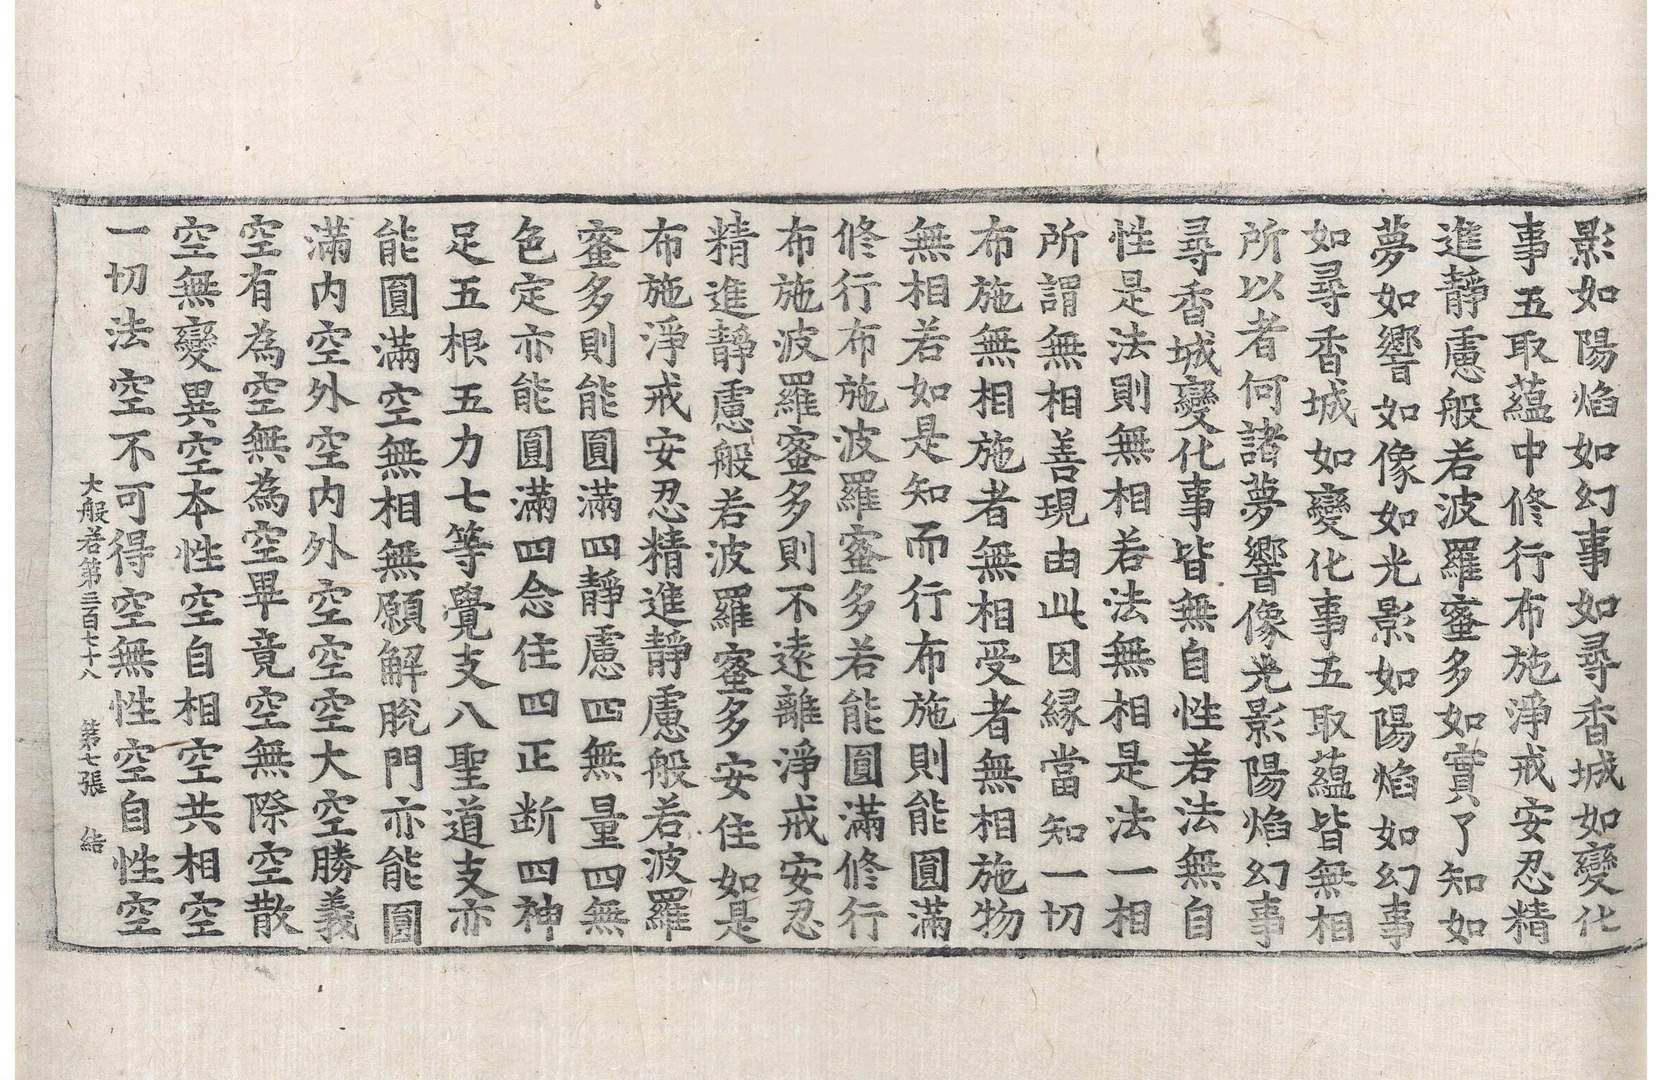 影如陽焰如幻事如尋香城如變化
事五取蘊中修行布施淨戒安忍精
進靜慮般若波羅蜜多如實了知如
夢如響如像如光影如陽焰如幻事
如尋香城如變化事五取蘊皆無相
所以者何諸夢響像光影陽焰幻事
尋香城變化事皆無自性若法無自
性是法則無相若法無相是法一相
所謂無相善現由此因緣當知一切
布施無相施者無相受者無相施物
無相若如是知而行布施則能圓滿
修行布施波羅蜜多若能圓滿修行
布施波羅蜜多則不遠離淨戒安忍
精進靜慮般若波羅蜜多安住如是
布施淨戒安忍精進靜慮般若波羅
蜜多則能圓滿四靜慮四無量四無
色定亦能圓滿四念住四正断四神
足五根五力七等覺支八聖道支亦
能圓滿空無相無願解脫門亦能圓
滿內空外空內外空空空大空勝義
空有為空無為空畢竟空無際空散
空無變異空本性空自相空共相空
一切法空不可得空無性空自性空
大般若第三百七十八 第七張 結